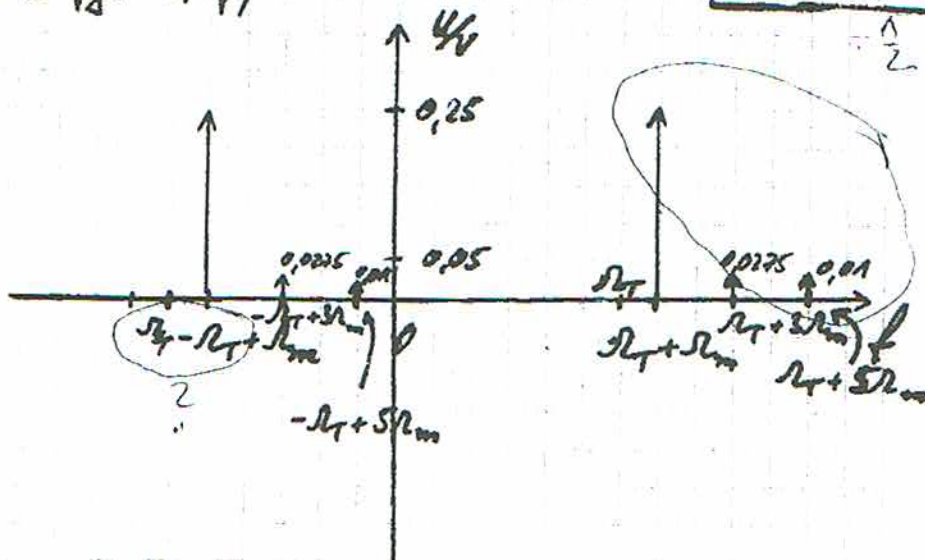 U/V
1/2
0,25
0,0275 0,01 0,05 Ω_T 0,0275 0,01
-Ω_T+Ω_m -Ω_T+3Ω_m 0 Ω_T+Ω_m Ω_T+3Ω_m f
? -Ω_T+5Ω_m Ω_T+5Ω_m